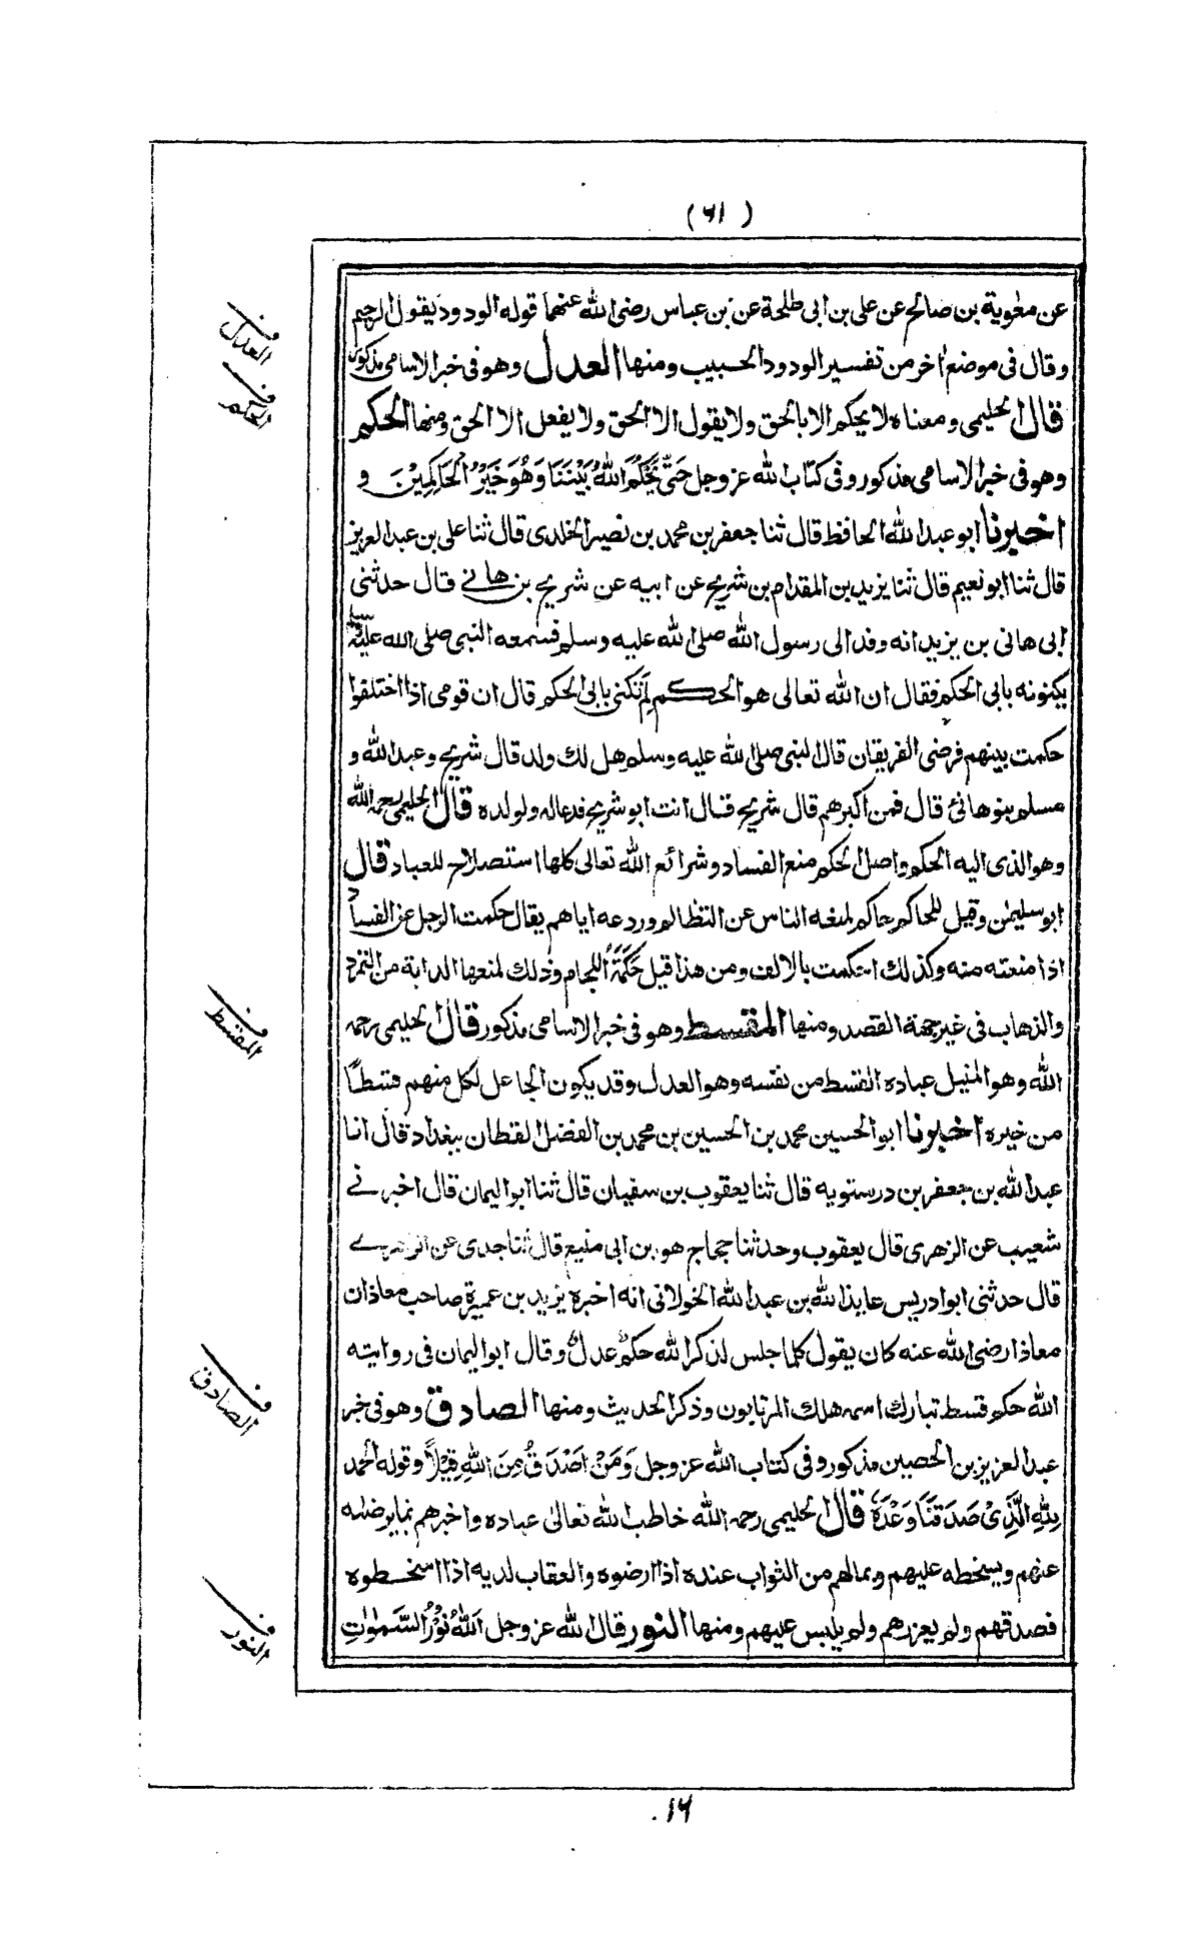 (٦١)
عن معٰوية بن صالح عن على بن ابى طلحة عن بن عباس رضى الله عنهما قوله الودود يقول الرحيم
وقال فى موضع اٰخر من تفسير الودود الحبيب ومنها العدل وهو فى خبر الاسامى مذكور
قال الحليمى ومعناه لا يحكم الا بالحق ولا يقول الا الحق ولا يفعل الا الحق ومنها الحكم
وهو فى خبر الاسامى مذكور وفى كتاب الله عز وجل حَتّٰى يَحْكُمَ اللهُ بَيْنَنَا وَهُوَ خَيْرُ الْحَاكِمِيْنَ و
اخبرنا ابو عبد الله الحافظ قال ثنا جعفر بن محمد بن نصير الخلدى قال ثنا على بن عبد العزيز
قال ثنا ابو نعيم قال ثنا يزيد بن المقدام بن شريح عن ابيه عن شريح بن هانے قال حدثنى
ابى هانى بن يزيد انه وفد الى رسول الله صلى الله عليه وسلم فسمعه النبى صلى الله عليه وسلم
يكنونه بابى الحكم فقال ان الله تعالى هو الحكم لم تكنى بابى الحكم قال ان قومى اذا اختلفوا
حكمت بينهم فرضى الفريقان قال النبى صلى الله عليه وسلم هل لك ولد قال شريح وعبد الله و
مسلم بنو هانئ قال فمن اكبرهم قال شريح قال انت ابو شريح فدعا له ولولده قال الحليمى رحمه الله
وهو الذى اليه الحكم واصل الحكم منع الفساد وشرائع الله تعالى كلها استصلاح للعباد قال
ابو سليمٰن وقيل للحاكم حاكم لمنعه الناس عن التظالم وردعه اياهم يقال حكمت الرجل عن الفساد
اذا منعته منه وكذلك احكمت بالالف ومن هذا قيل حَكَمَةُ اللجام وذلك لمنعها الدابة من التمرد
والذهاب فى غير جهة القصد ومنها المقسط وهو فى خبر الاسامى مذكور قال الحليمى رحمه
الله وهو المنيل عباده القسط من نفسه وهو العدل وقد يكون الجاعل لكل منهم قسطًا
من خيره اخبرنا ابو الحسين محمد بن الحسين بن محمد بن الفضل القطان ببغداد قال انا
عبد الله بن جعفر بن درستويه قال ثنا يعقوب بن سفيان قال ثنا ابو اليمان قال اخبرنے
شعيب عن الزهرى قال يعقوب وحدثنا حجاج هو بن ابى منيع قال ثنا جدى عن الزهرے
قال حدثنى ابو ادريس عايذ الله بن عبد الله الخولانى انه اخبره يزيد بن عميرة صاحب معاذ ان
معاذا رضى الله عنه كان يقول كلما جلس لذكر الله حكمٌ عدلٌ وقال ابو اليمان فى روايته
الله حكم قسط تبارك اسمه هلك المرتابون وذكر الحديث ومنها الصادق وهو فى خبر
عبد العزيز بن الحصين مذكور وفى كتاب الله عز وجل وَمَنْ اَصْدَقُ مِنَ اللهِ قِيْلًا وقوله الحمد
لِلّٰهِ الَّذِىْ صَدَقَنَا وَعْدَهٗ قال الحليمى رحمه الله خاطب الله تعالى عباده واخبرهم بما يرضيه
عنهم ويسخطه عليهم وبمالهم من الثواب عنده اذا ارضوه والعقاب لديه اذا اسخطوه
فصدقهم ولم يعزرهم ولم يلبس عليهم ومنها النور قال الله عز وجل اَللهُ نُوْرُ السَّمٰوٰتِ
العدل
الحكم
المقسط
الصادق
النور
١٦